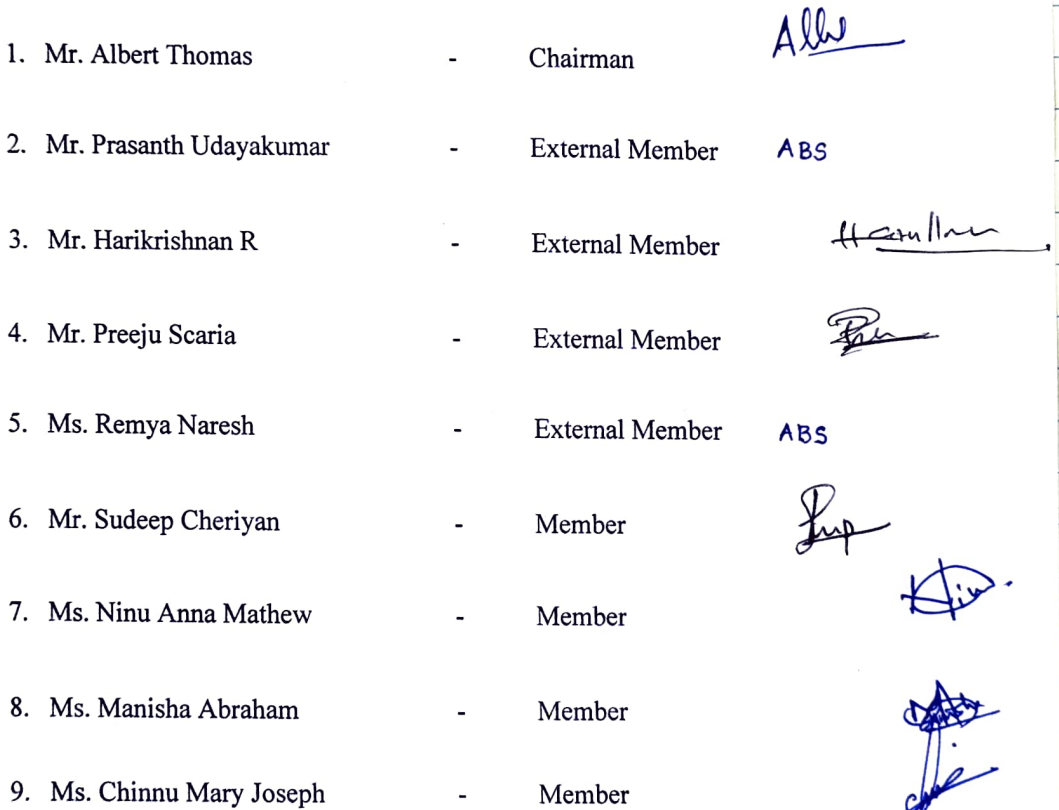 1. Mr. Albert Thomas - Chairman
2. Mr. Prasanth Udayakumar - External Member ABS
3. Mr. Harikrishnan R - External Member
4. Mr. Preeju Scaria - External Member
5. Ms. Remya Naresh - External Member ABS
6. Mr. Sudeep Cheriyan - Member
7. Ms. Ninu Anna Mathew - Member
8. Ms. Manisha Abraham - Member
9. Ms. Chinnu Mary Joseph - Member